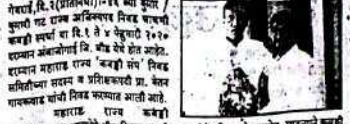 गेवराई,दि.२(प्रतिनिधी)-२६ व्या कुमार /
कुमारी गट राज्य अजिंक्यपद निवड चाचणी
कबड्डी स्पर्धा दि.१ ते ४ फेब्रुवारी २०२०
दरम्यान अंबाजोगाई जि. बीड येथे होत आहेत.
दरम्यान महाराष्ट्र राज्य "कबड्डी संघ" निवड
समितीच्या सदस्य व प्रशिक्षकपदी प्रा. चेतन
गायकवाड यांची निवड करण्यात आली आहे.
महाराष्ट्र राज्य कबड्डी